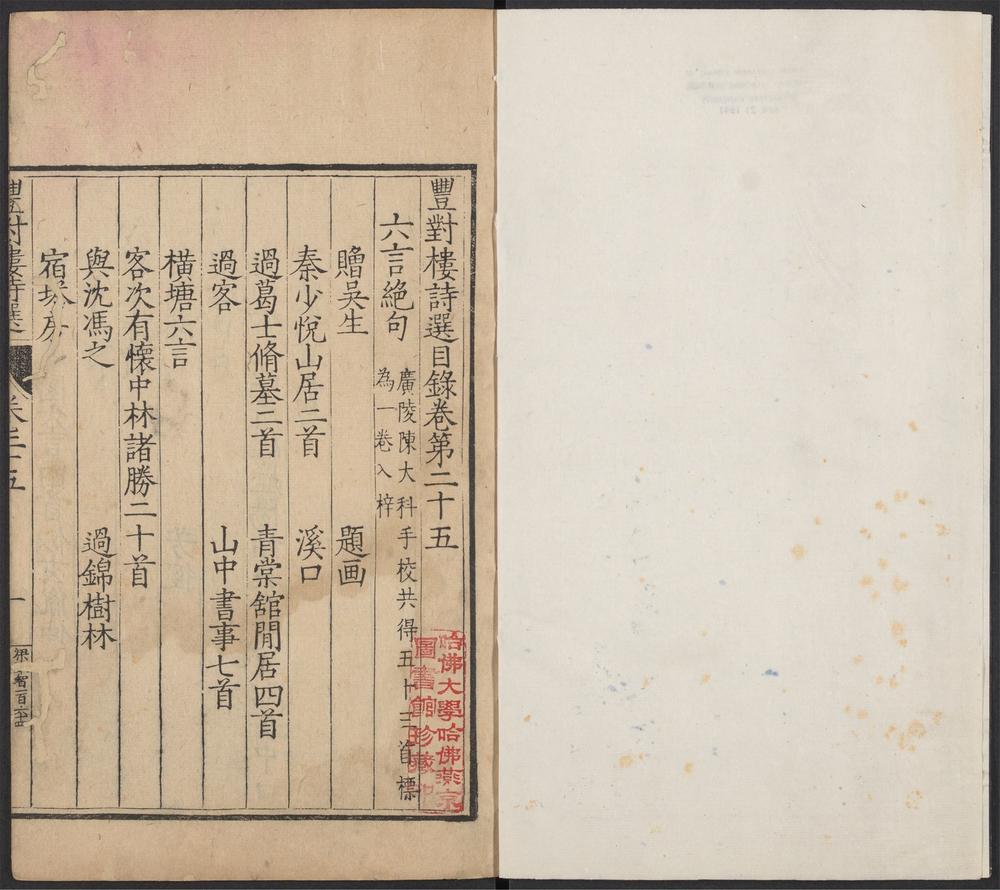 豐對樓詩選目錄卷第二十五
六言絕句 廣陵陳大科手校共得五十三首標
為一卷入梓
贈吳生 題画
秦少悅山居二首 溪口
過葛士脩墓二首 青棠舘閒居四首
過客 山中書事七首
橫塘六言
客次有懷中林諸勝二十首
與沈馮之 過錦樹林
宿 房
豐對樓詩選 卷二十五 一
哈佛大學哈佛燕京
圖書館珍藏印